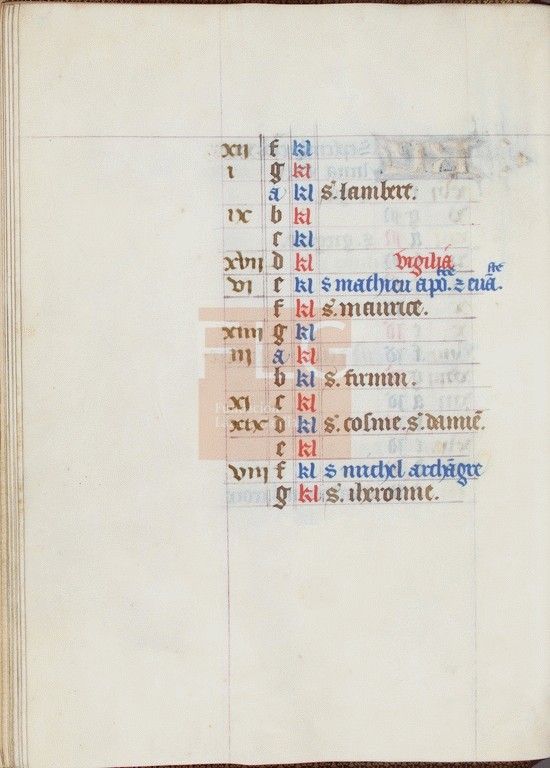 xii f kl
i g kl
a kl s. lambert.
ix b kl
c kl
xvii d kl vigilia
vi e kl s mathieu apo. z eua.
f kl s. maurice.
xiiii g kl
iii a kl
b kl s. firmin.
xi c kl
xix d kl s. cosme. s. damiē.
e kl
viii f kl s michel archāgre
g kl s. iheroime.
FLG
Fundación